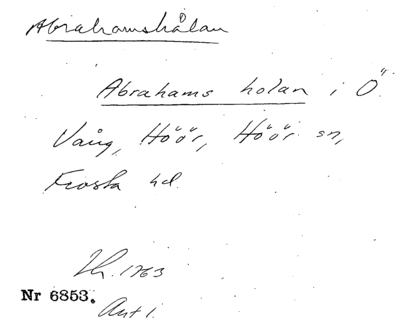 Abrahamshålan
Abrahams holan i Ö.
Vång, Höör, Höör sn,
Frosta hd.
1763
Nr 6853.
Akt 1.